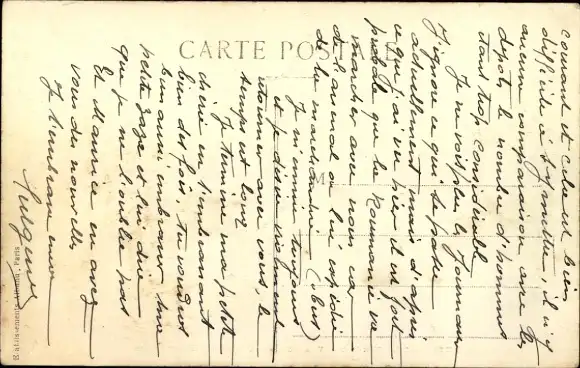 CARTE POSTALE
courant et cela est bien
difficile à s'y mettre, il n'y a
aucune comparaison avec les
dépôts, le nombre d'hommes
étant trop considérable
Je ne vois plus les journaux
J'ignore ce qui se passe
actuellement mais d'après
ce que j'ai vu hier il est fort
probable que la Roumanie va
marcher avec nous car
de la marchandise (obus)
Je m'ennuie toujours
et je désire vivement
retourner avec vous, le
temps est long
Je termine ma petite
chérie en t'embrassant
bien des fois, tu voudras
bien aussi embrasser
petite Zaza et lui dire
que je ne l'oublie pas
Et Maurice en avez
vous des nouvelles
Je t'embrasse encore
Fulgence
Paris